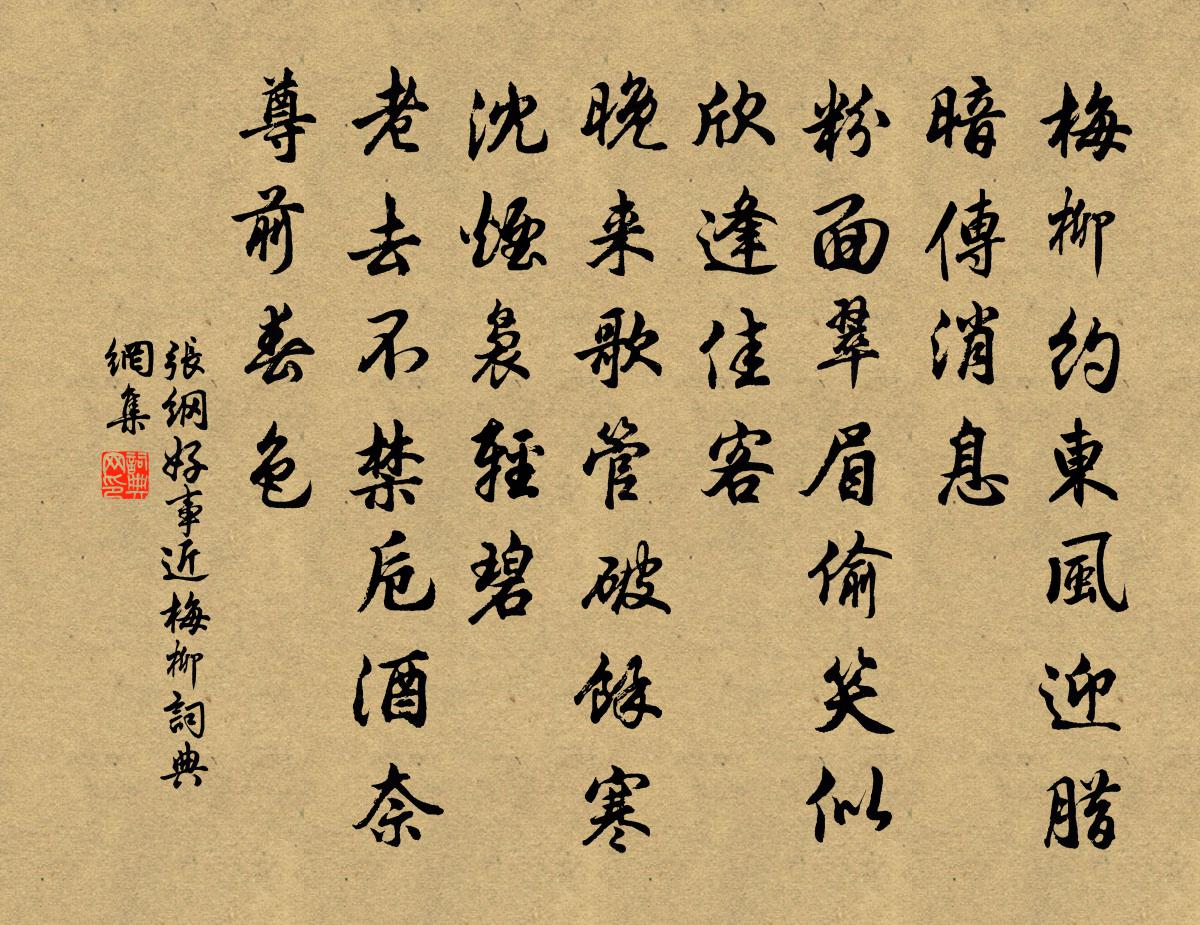 梅柳約東風迎腊
暗傳消息
粉面翠眉偷笑似
欣逢佳客
晚来歌管破餘寒
沈煙裊輕碧
老去不禁卮酒奈
尊前春色
張綱好事近梅柳詞典
網集
詞典
网印